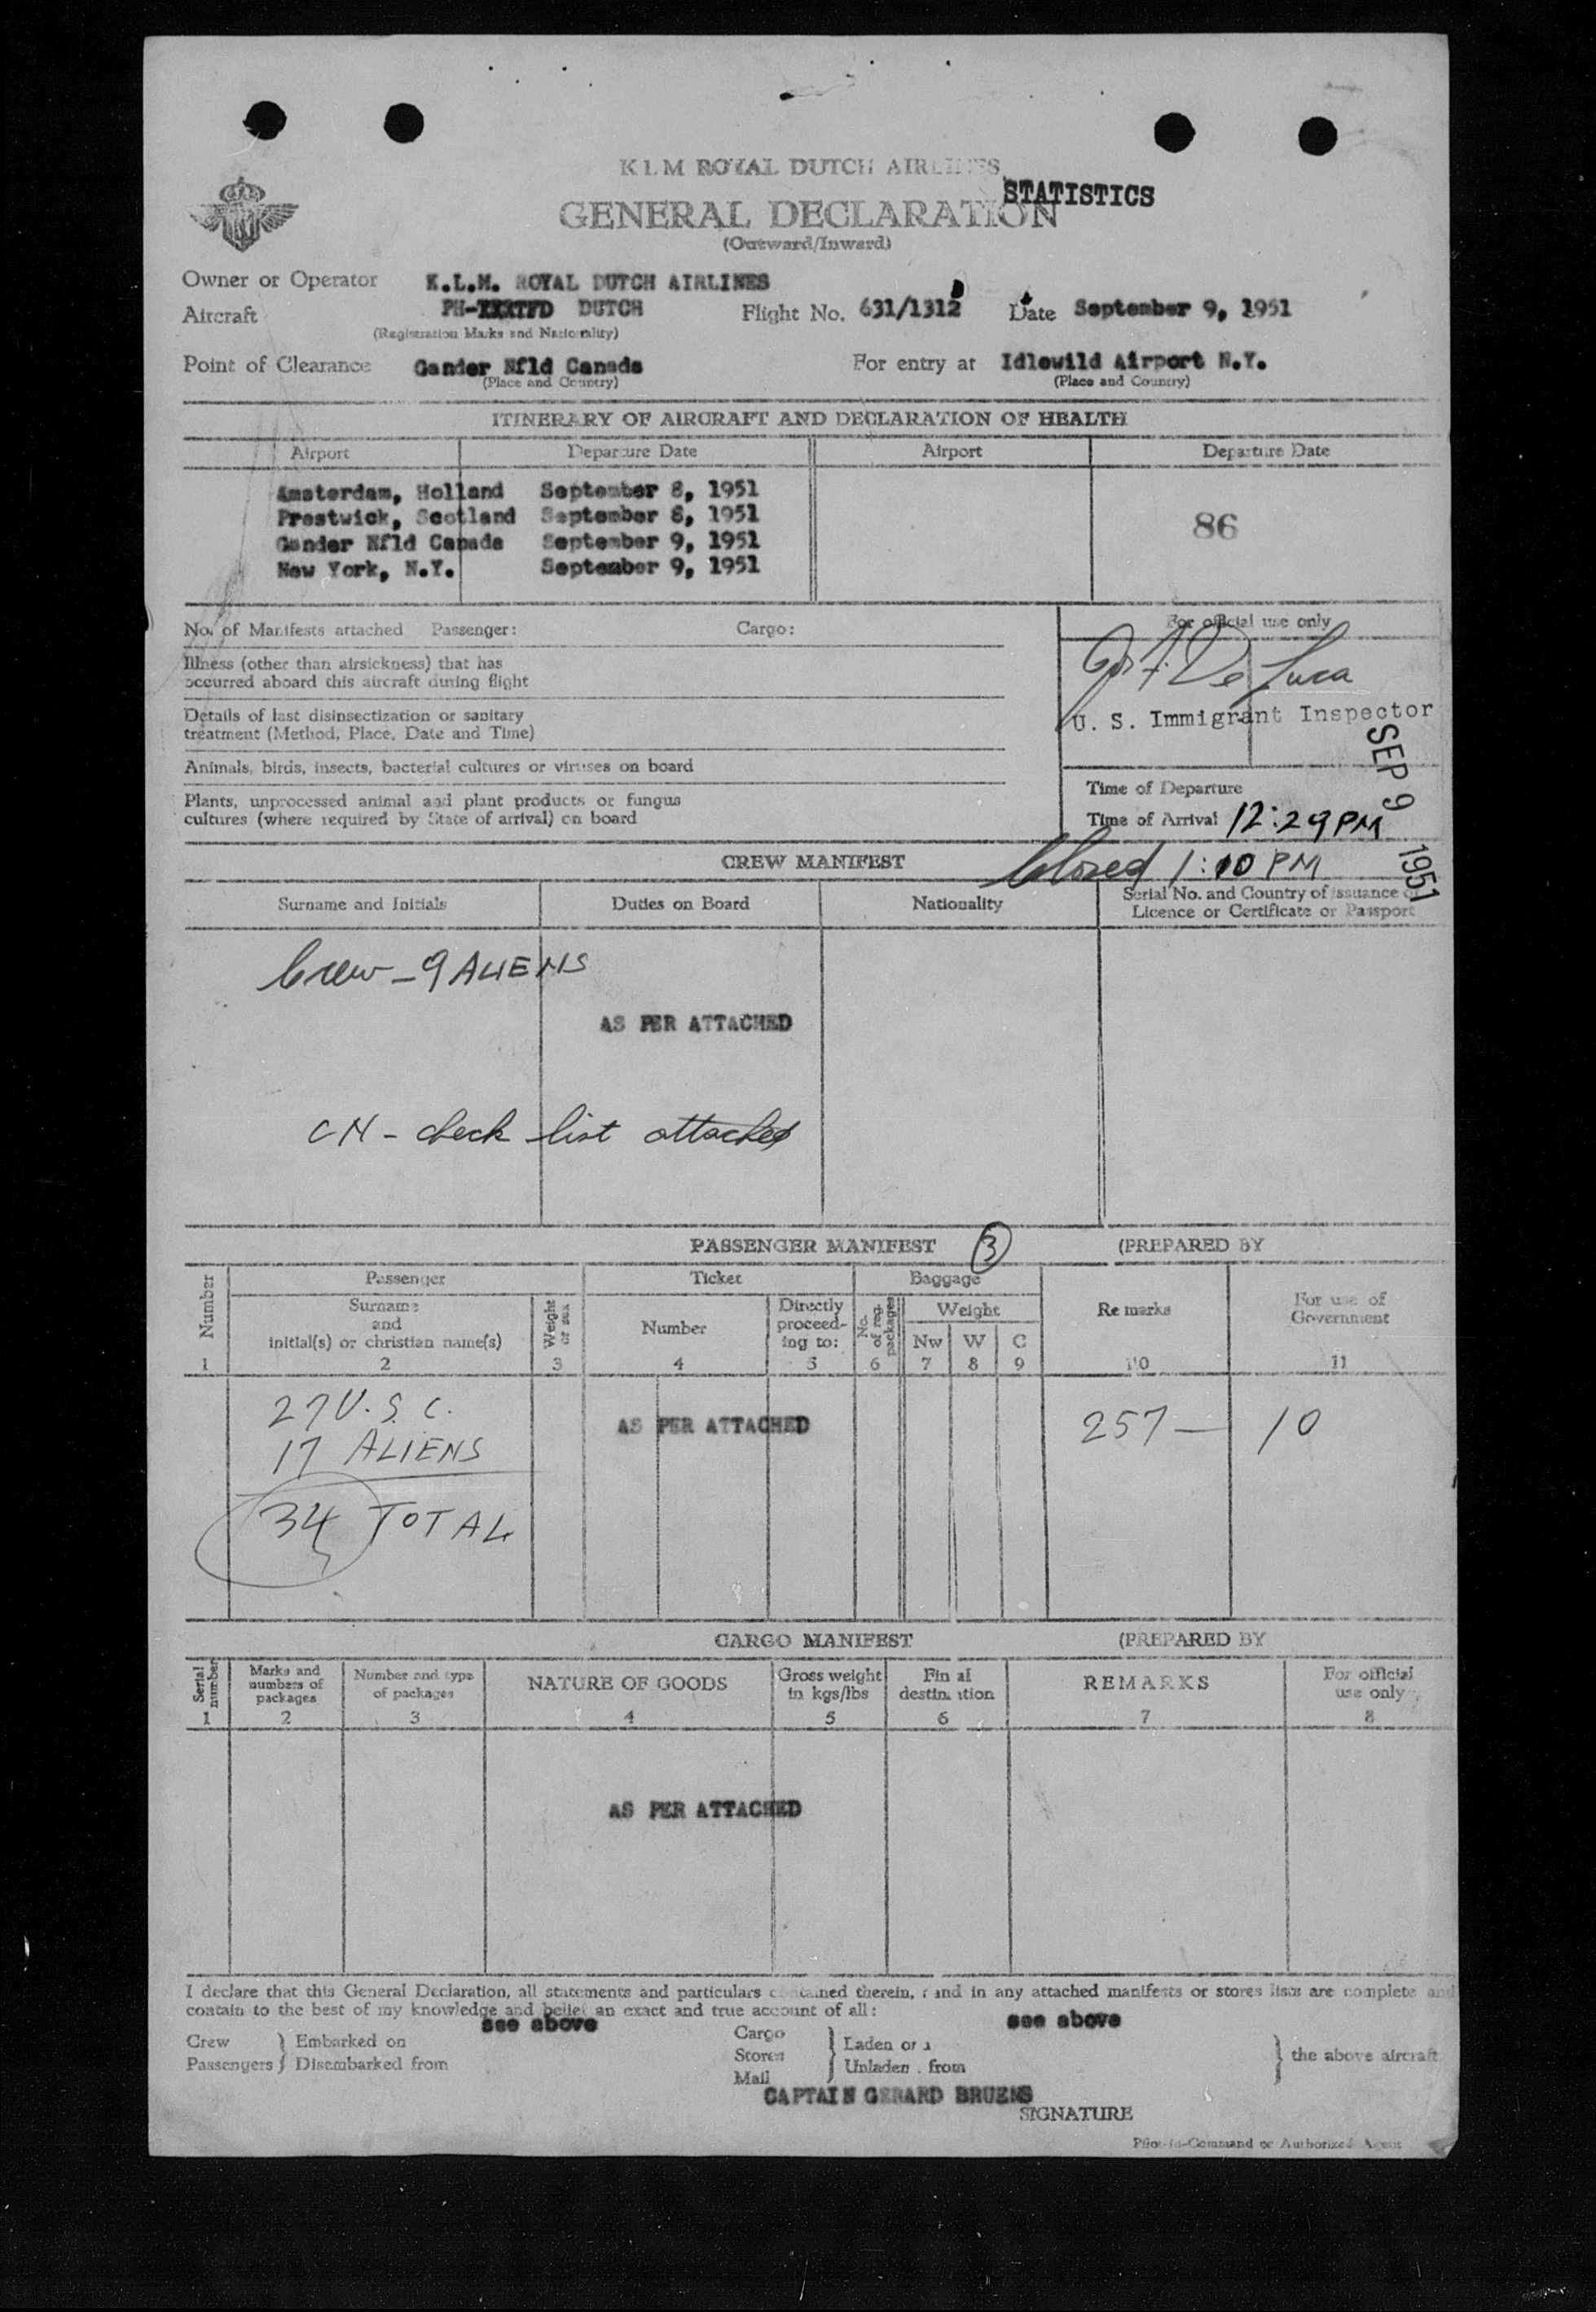 KLM ROYAL DUTCH AIRLINES
STATISTICS
GENERAL DECLARATION
(Outward/Inward)
Owner or Operator K.L.M. ROYAL DUTCH AIRLINES
Aircraft PH-XXXTFD DUTCH Flight No. 631/1312 Date September 9, 1951
(Registration Marks and Nationality)
Point of Clearance Gander Nfld Canada For entry at Idlewild Airport N.Y.
(Place and Country) (Place and Country)
ITINERARY OF AIRCRAFT AND DECLARATION OF HEALTH
Airport Departure Date Airport Departure Date
Amsterdam, Holland September 8, 1951
Prestwick, Scotland September 8, 1951
Gander Nfld Canada September 9, 1951
New York, N.Y. September 9, 1951
86
No. of Manifests attached Passenger: Cargo:
For official use only
Illness (other than airsickness) that has
occurred aboard this aircraft during flight
De Luca
U. S. Immigrant Inspector
SEP 9 1951
Details of last disinsectization or sanitary
treatment (Method, Place, Date and Time)
Animals, birds, insects, bacterial cultures or viruses on board
Plants, unprocessed animal and plant products or fungus
cultures (where required by State of arrival) on board
Time of Departure
Time of Arrival 12:29 PM
Closed 1:10 PM
CREW MANIFEST
Surname and Initials Duties on Board Nationality Serial No. and Country of issuance of
Licence or Certificate or Passport
Crew - 9 ALIENS
AS PER ATTACHED
CM - check list attached
PASSENGER MANIFEST 3 (PREPARED BY
Number Passenger Ticket Baggage Remarks For use of Government
Surname and initial(s) or christian name(s) Weight or sex Number Directly proceeding to: No. of reg. packages Weight
Nw W C
1 2 3 4 5 6 7 8 9 10 11
27 U.S.C.
17 ALIENS
34 TOTAL
AS PER ATTACHED
257 — 10
CARGO MANIFEST (PREPARED BY
Serial number Marks and numbers of packages Number and type of packages NATURE OF GOODS Gross weight in kgs/lbs Final destination REMARKS For official use only
1 2 3 4 5 6 7 8
AS PER ATTACHED
I declare that this General Declaration, all statements and particulars contained therein, and in any attached manifests or stores lists are complete and
contain to the best of my knowledge and belief an exact and true account of all:
see above see above
Crew } Embarked on Cargo } Laden on
Passengers } Disembarked from Stores } Unladen from } the above aircraft
Mail
CAPTAIN GERARD BRUENS
SIGNATURE
Pilot-in-Command or Authorized Agent